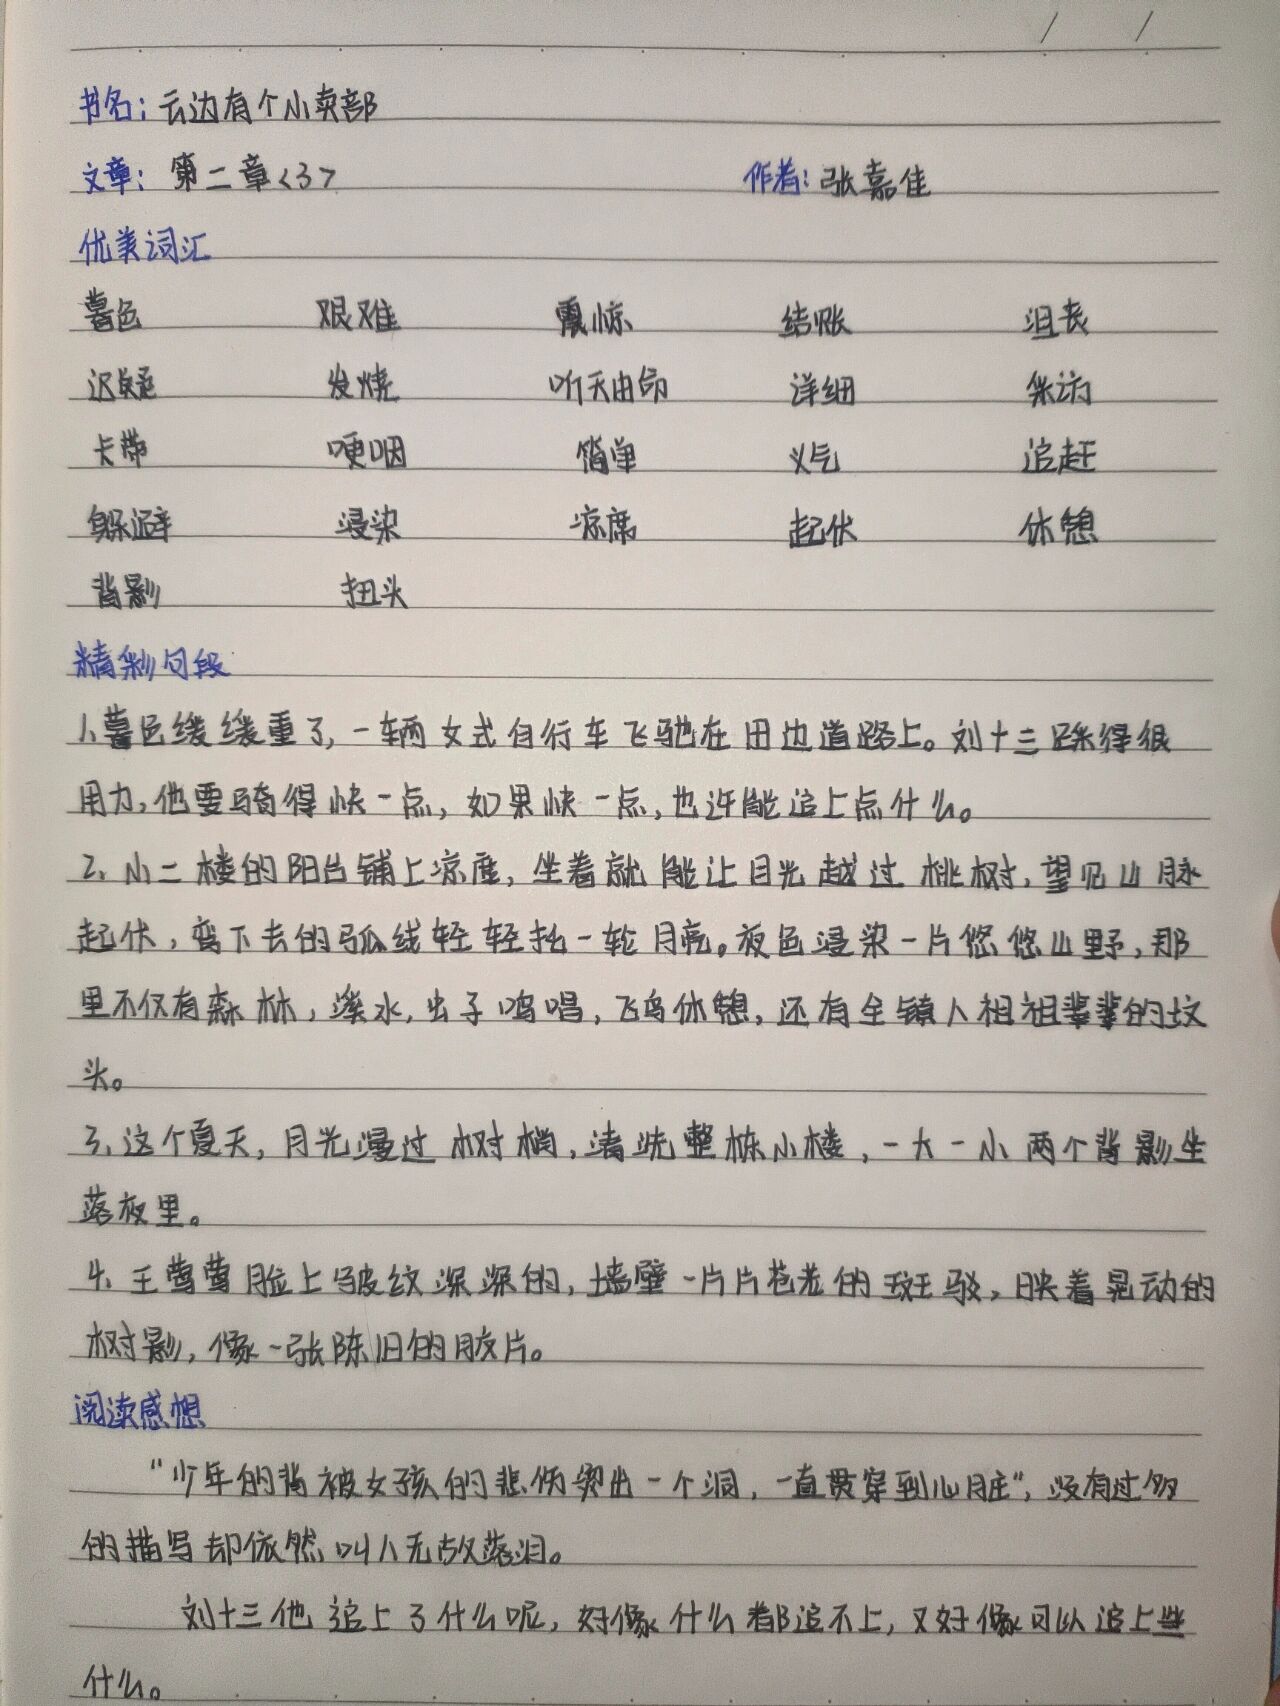 书名：云边有个小卖部
文章：第二章<3> 作者：张嘉佳
优美词汇
暮色 艰难 震惊 结账 沮丧
迟疑 发烧 听天由命 详细 采访
卡带 哽咽 简单 义气 追赶
躲避 浸染 凉席 起伏 休憩
背影 扭头
精彩句段
1、暮色缓缓重了，一辆女式自行车飞驰在田边道路上。刘十三踩得很
用力，他要骑得快一点，如果快一点，也许能追上点什么。
2、小二楼的阳台铺上凉席，坐着就能让目光越过桃树，望见山脉
起伏，弯下去的弧线轻轻托一轮月亮。夜色浸染一片悠悠山野，那
里不仅有森林，溪水，虫子鸣唱，飞鸟休憩，还有全镇人祖祖辈辈的坟
头。
3、这个夏天，月光漫过树梢，清洗整栋小楼，一大一小两个背影坐
落夜里。
4、王莺莺脸上皱纹深深的，墙壁一片片苍老的斑驳，映着晃动的
树影，像一张陈旧的胶片。
阅读感想
“少年的背被女孩的悲伤烫出一个洞，一直贯穿到心脏”，没有过多
的描写却依然叫人无故落泪。
刘十三他追上了什么呢，好像什么都追不上，又好像可以追上些
什么。